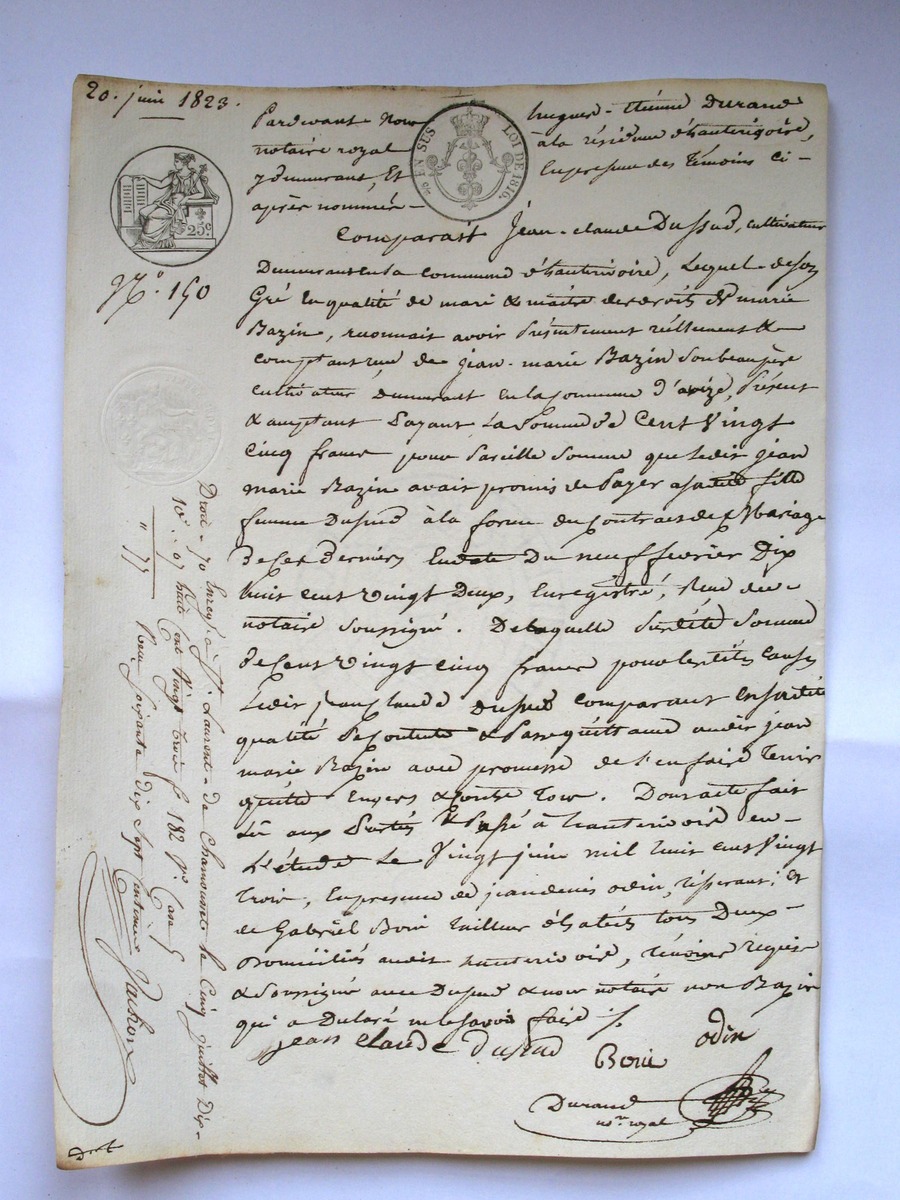 20. juin 1823.
Pardevant Nous hugues-Etienne Durand
notaire royal à la résidence d'hauterivoire,
y demeurant, Et En presence des Témoins ci-
après nommés-
EN SUS LOI DE 1816.
25c
Comparait Jean-claude Dussud, cultivateur
N.o 150
Demeurant en la commune d'hauterivoire, Lequel de son
Gré En qualité de mari & maitre des droits de marie
Bazin, reconnait avoir Présentement réellement &
comptant reçu de jean-marie Bazin son beau père
cultivateur Demeurant en la Commune d'aveize, Présent
& acceptant Payant La Somme de Cent Vingt
Cinq francs pour Pareille Somme que Ledit jean
marie Bazin avait promis de Payer a sa fille
femme Dussud à la forme du Contrat de Mariage
de ces derniers En date Du neuf fevrier Dix
huit cent vingt Deux, Enregistré, Reçu du
notaire Soussigné. De laquelle Susdite Somme
de Cent vingt cinq francs pour les dites Causes
Ledit jean Claude Dussud comparant En sa dite
qualité Se Contente & Passe quittance audit jean
marie Bazin avec promesse de l'en faire Tenir
quitte Envers & contre Tous. Dont acte fait
Lû aux Parties & Passé à hauterivoire en
L'étude Le Vingt juin mil huit cent Vingt
Trois, En presence de jean denis odin, Tisserant, Et
de Gabriel Boni Tailleur d'habits tous Deux
Domiciliés audit hauterivoire, Témoins requis
& Soussignés avec Dussud & nous notaire non Bazin
qui a Déclaré ne le savoir faire ./.
jean claude dussud
Boni odin
Durand
no.re royal
Droit 70 Enreg. à St. Laurent-de Chamousset le Cinq juillet Dix-
10e 07 huit Cent Vingt trois f.o 182 v.o Case 5
" 77 Reçu soixante dix Sept Centimes Vachon
Dont